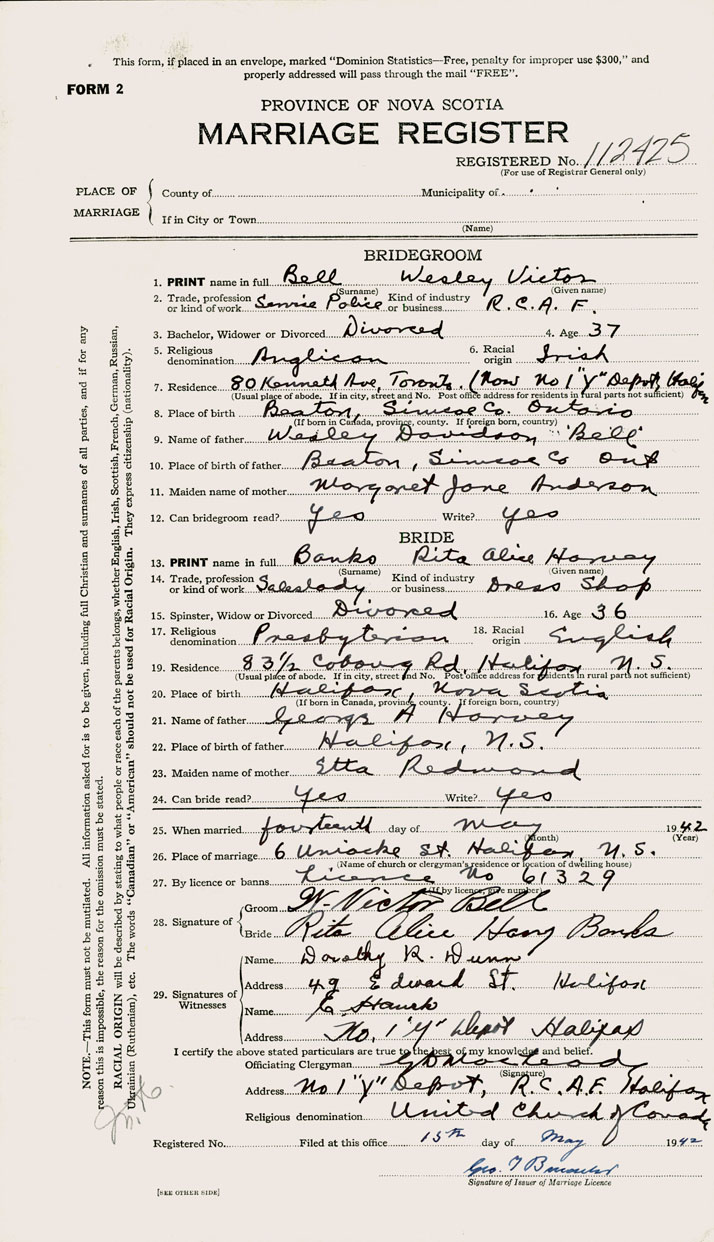 This form, if placed in an envelope, marked "Dominion Statistics—Free, penalty for improper use $300," and
properly addressed will pass through the mail "FREE".
FORM 2
PROVINCE OF NOVA SCOTIA
MARRIAGE REGISTER
REGISTERED No. 112425
(For use of Registrar General only)
PLACE OF MARRIAGE
County of Municipality of
If in City or Town
(Name)
BRIDEGROOM
1. PRINT name in full Bell Wesley Victor
(Surname) (Given name)
2. Trade, profession or kind of work Service Police Kind of industry or business R.C.A.F.
3. Bachelor, Widower or Divorced Divorced 4. Age 37
5. Religious denomination Anglican 6. Racial origin Irish
7. Residence 80 Kenneth Ave, Toronto. (Now No 1 "Y" Depot, Halifx
(Usual place of abode. If in city, street and No. Post office address for residents in rural parts not sufficient)
8. Place of birth Beaton, Simcoe Co. Ontario
(If born in Canada, province, county. If foreign born, country)
9. Name of father Wesley Davidson "Bell"
10. Place of birth of father Beaton, Simcoe Co Ont
11. Maiden name of mother Margaret Jane Anderson
12. Can bridegroom read? Yes Write? Yes
BRIDE
13. PRINT name in full Banks Rita Alice Harvey
(Surname) (Given name)
14. Trade, profession or kind of work Saleslady Kind of industry or business Dress Shop
15. Spinster, Widow or Divorced Divorced 16. Age 36
17. Religious denomination Presbyterian 18. Racial origin English
19. Residence 83 1/2 Cobourg Rd, Halifax N.S.
(Usual place of abode. If in city, street and No. Post office address for residents in rural parts not sufficient)
20. Place of birth Halifax, Nova Scotia
(If born in Canada, province, county. If foreign born, country)
21. Name of father George A Harvey
22. Place of birth of father Halifax, N.S.
23. Maiden name of mother Etta Redmond
24. Can bride read? Yes Write? Yes
25. When married fourteenth day of May 1942
(Month) (Year)
26. Place of marriage 6 Uniacke St. Halifax, N.S.
(Name of church or clergyman's residence or location of dwelling house)
27. By licence or banns Licence No 61329
(If by licence, give number)
28. Signature of
Groom W. Victor Bell
Bride Rita Alice Harvy Banks
29. Signatures of Witnesses
Name Dorothy R. Dunn
Address 49 Edward St. Halifax
Name E.
Address No. 1 "Y" Depot Halifax
I certify the above stated particulars are true to the best of my knowledge and belief.
Officiating Clergyman
(Signature)
Address No 1 "Y" Depot, R.C.A.F. Halifax
Religious denomination United Church of Canada
Registered No. Filed at this office 15th day of May 1942
Geo. T
Signature of Issuer of Marriage Licence
[SEE OTHER SIDE]
NOTE.—This form must not be mutilated. All information asked for is to be given, including full Christian and surnames of all parties, and if for any
reason this is impossible, the reason for the omission must be stated.
RACIAL ORIGIN will be described by stating to what people or race each of the parents belongs, whether English, Irish, Scottish, French, German, Russian,
Ukrainian (Ruthenian), etc. The words "Canadian" or "American" should not be used for Racial Origin. They express citizenship (nationality).